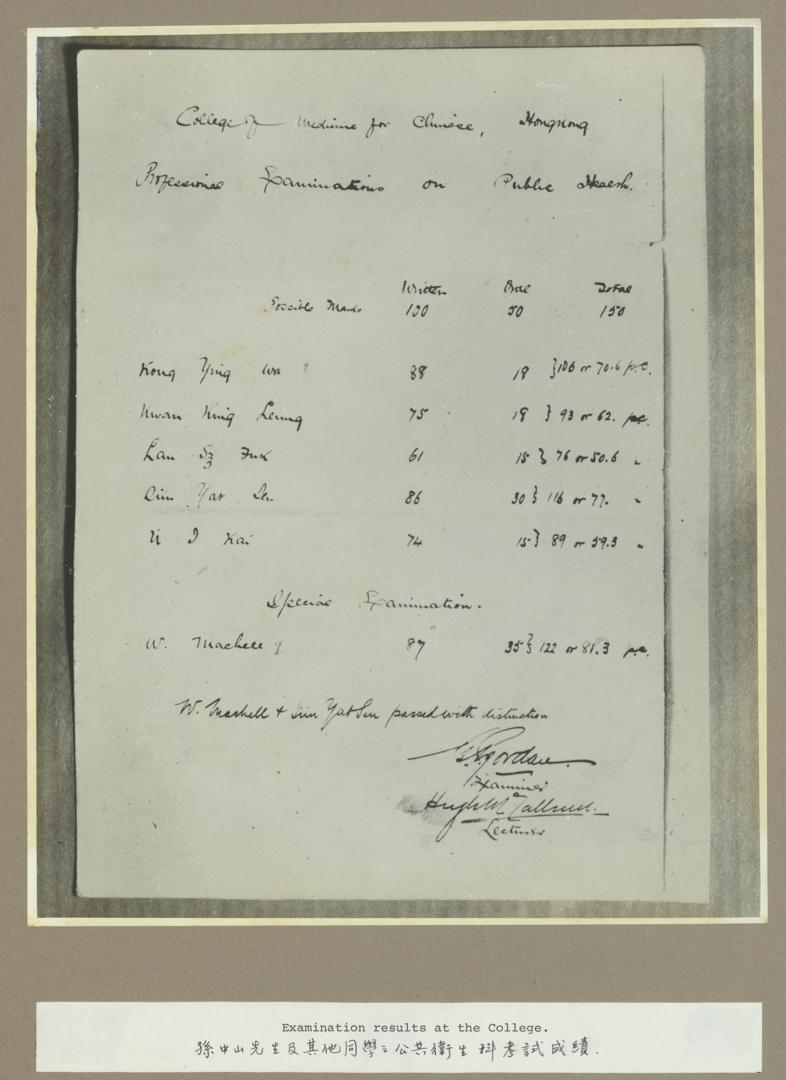 College of Medicine for Chinese, Hongkong
Professional Examinations on Public Health.
Written Oral Total
Possible Marks 100 50 150
Kong Ying Wa 88 18 } 106 or 70.6 p.c.
Kwan King Leung 75 18 } 93 or 62. p.c.
Lau Sz Fuk 61 15 } 76 or 50.6 "
Sun Yat Sen 86 30 } 116 or 77. "
U I Kai 74 15 } 89 or 59.3 "
Special Examination.
W. Machell 87 35 } 122 or 81.3 p.c.
W. Machell & Sun Yat Sen passed with distinction
Jordan.
Examiner
Hugh McCallum.
Lecturer
Examination results at the College.
孫中山先生及其他同學之公共衛生科考試成績.